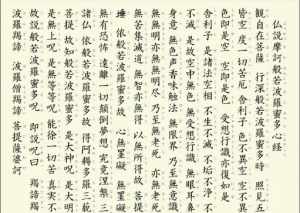 仏説摩訶般若波羅蜜多心経
観自在菩薩 行深般若波羅蜜多時 照見五
皆空 度一切苦厄 舎利子 色不異空 空不異
色即是空 空即是色 受想行識亦復如是
舎利子 是諸法空相 不生不滅 不垢不浄 不
不減 是故空中無色 無受想行識 無眼耳鼻
身意 無色声香味触法 無眼界 乃至無意識
無無明 亦無無明尽 乃至無老死 亦無老死
無苦集滅道 無智亦無得 以無所得故 菩提
埵 依般若波羅蜜多故 心無罣礙 無罣礙
無有恐怖 遠離一切顛倒夢想 究竟涅槃 三
諸仏 依般若波羅蜜多故 得阿耨多羅三藐
菩提 故知般若波羅蜜多 是大神呪 是大明
是無上呪 是無等等呪 能除一切苦 真実不
故説般若波羅蜜多呪 即説呪曰 羯諦羯諦
波羅羯諦 波羅僧羯諦 菩提薩婆訶